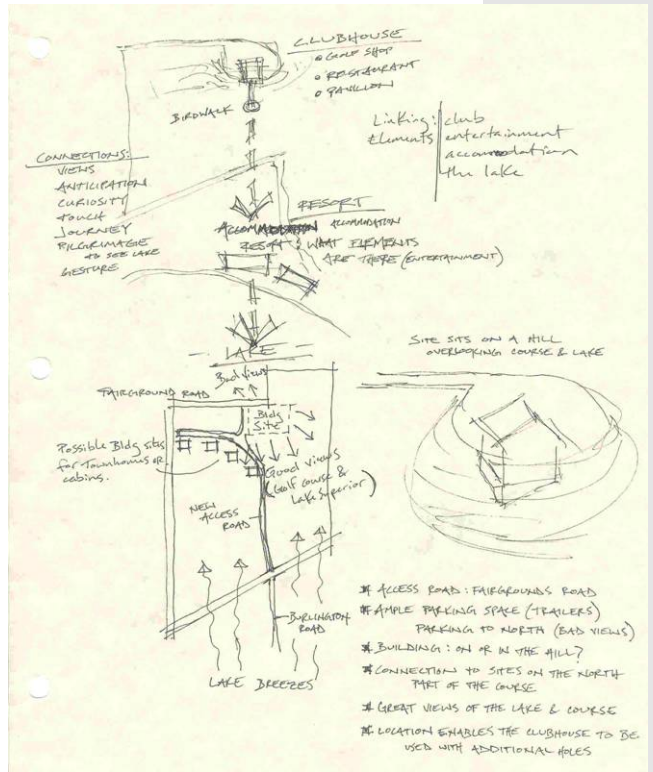 CLUBHOUSE
• GOLF SHOP
• RESTAURANT
• PAVILION
BIRDWALK
Linking: club
Elements entertainment
accomodation
the lake
CONNECTIONS:
VIEWS
ANTICIPATION
CURIOSITY
TOUCH
JOURNEY
PILGRIMAGE
TO SEE LAKE
GESTURE
RESORT
ACCOMMODATION
RESORT: WHAT ELEMENTS
ARE THERE (ENTERTAINMENT)
LAKE
Bad views
FAIRGROUND ROAD
Bldg
Site
Possible Bldg sites
for Townhomes or
cabins.
Good views
(Golf course &
Lake Superior)
NEW
ACCESS
ROAD
BURLINGTON
ROAD
LAKE BREEZES
SITE SITS ON A HILL
OVERLOOKING COURSE & LAKE
* ACCESS ROAD: FAIRGROUNDS ROAD
* AMPLE PARKING SPACE (TRAILERS)
PARKING TO NORTH (BAD VIEWS)
* BUILDING: ON OR IN THE HILL?
* CONNECTION TO SITES ON THE NORTH
PART OF THE COURSE
* GREAT VIEWS OF THE LAKE & COURSE
* LOCATION ENABLES THE CLUBHOUSE TO BE
USED WITH ADDITIONAL HOLES